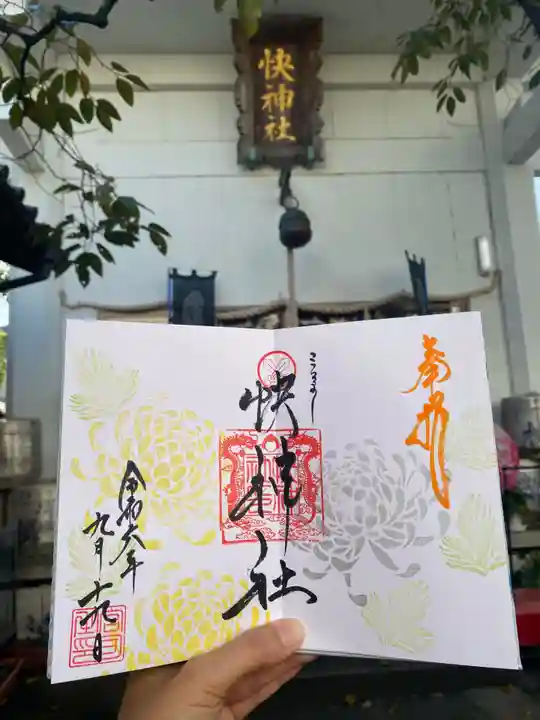 快神社
菊月
こころよし
快神社
令和六年
九月十九日